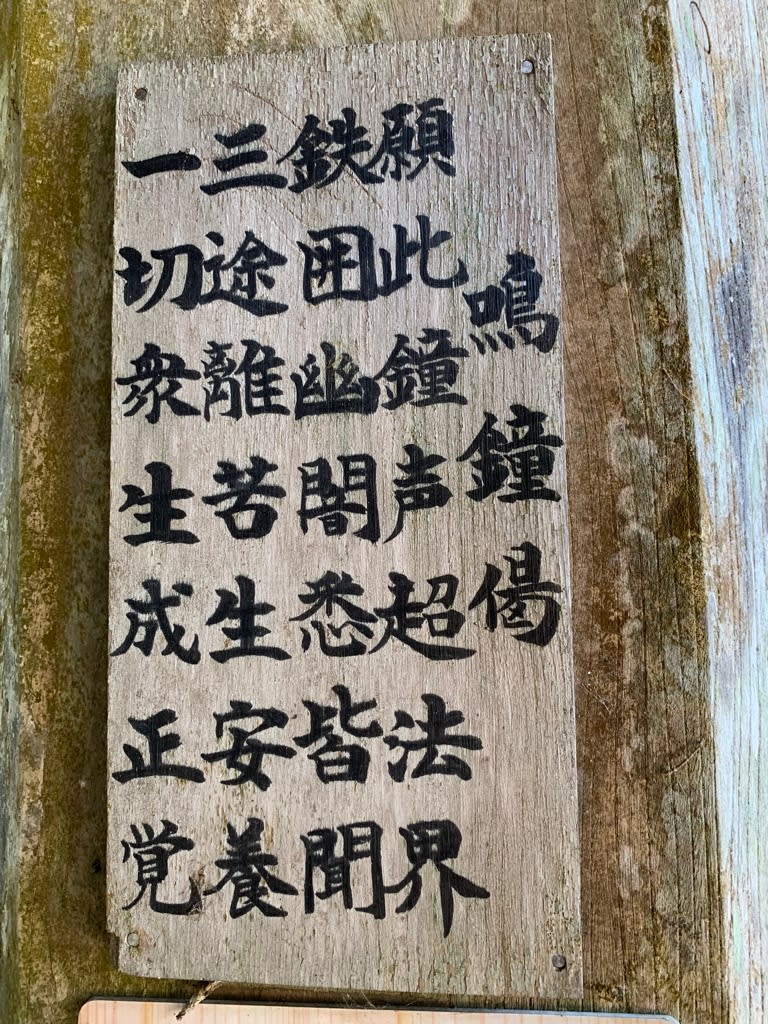 鳴鐘偈
願此鐘声超法界
鉄囲幽闇悉皆聞
三途離苦生安養
一切衆生成正覚